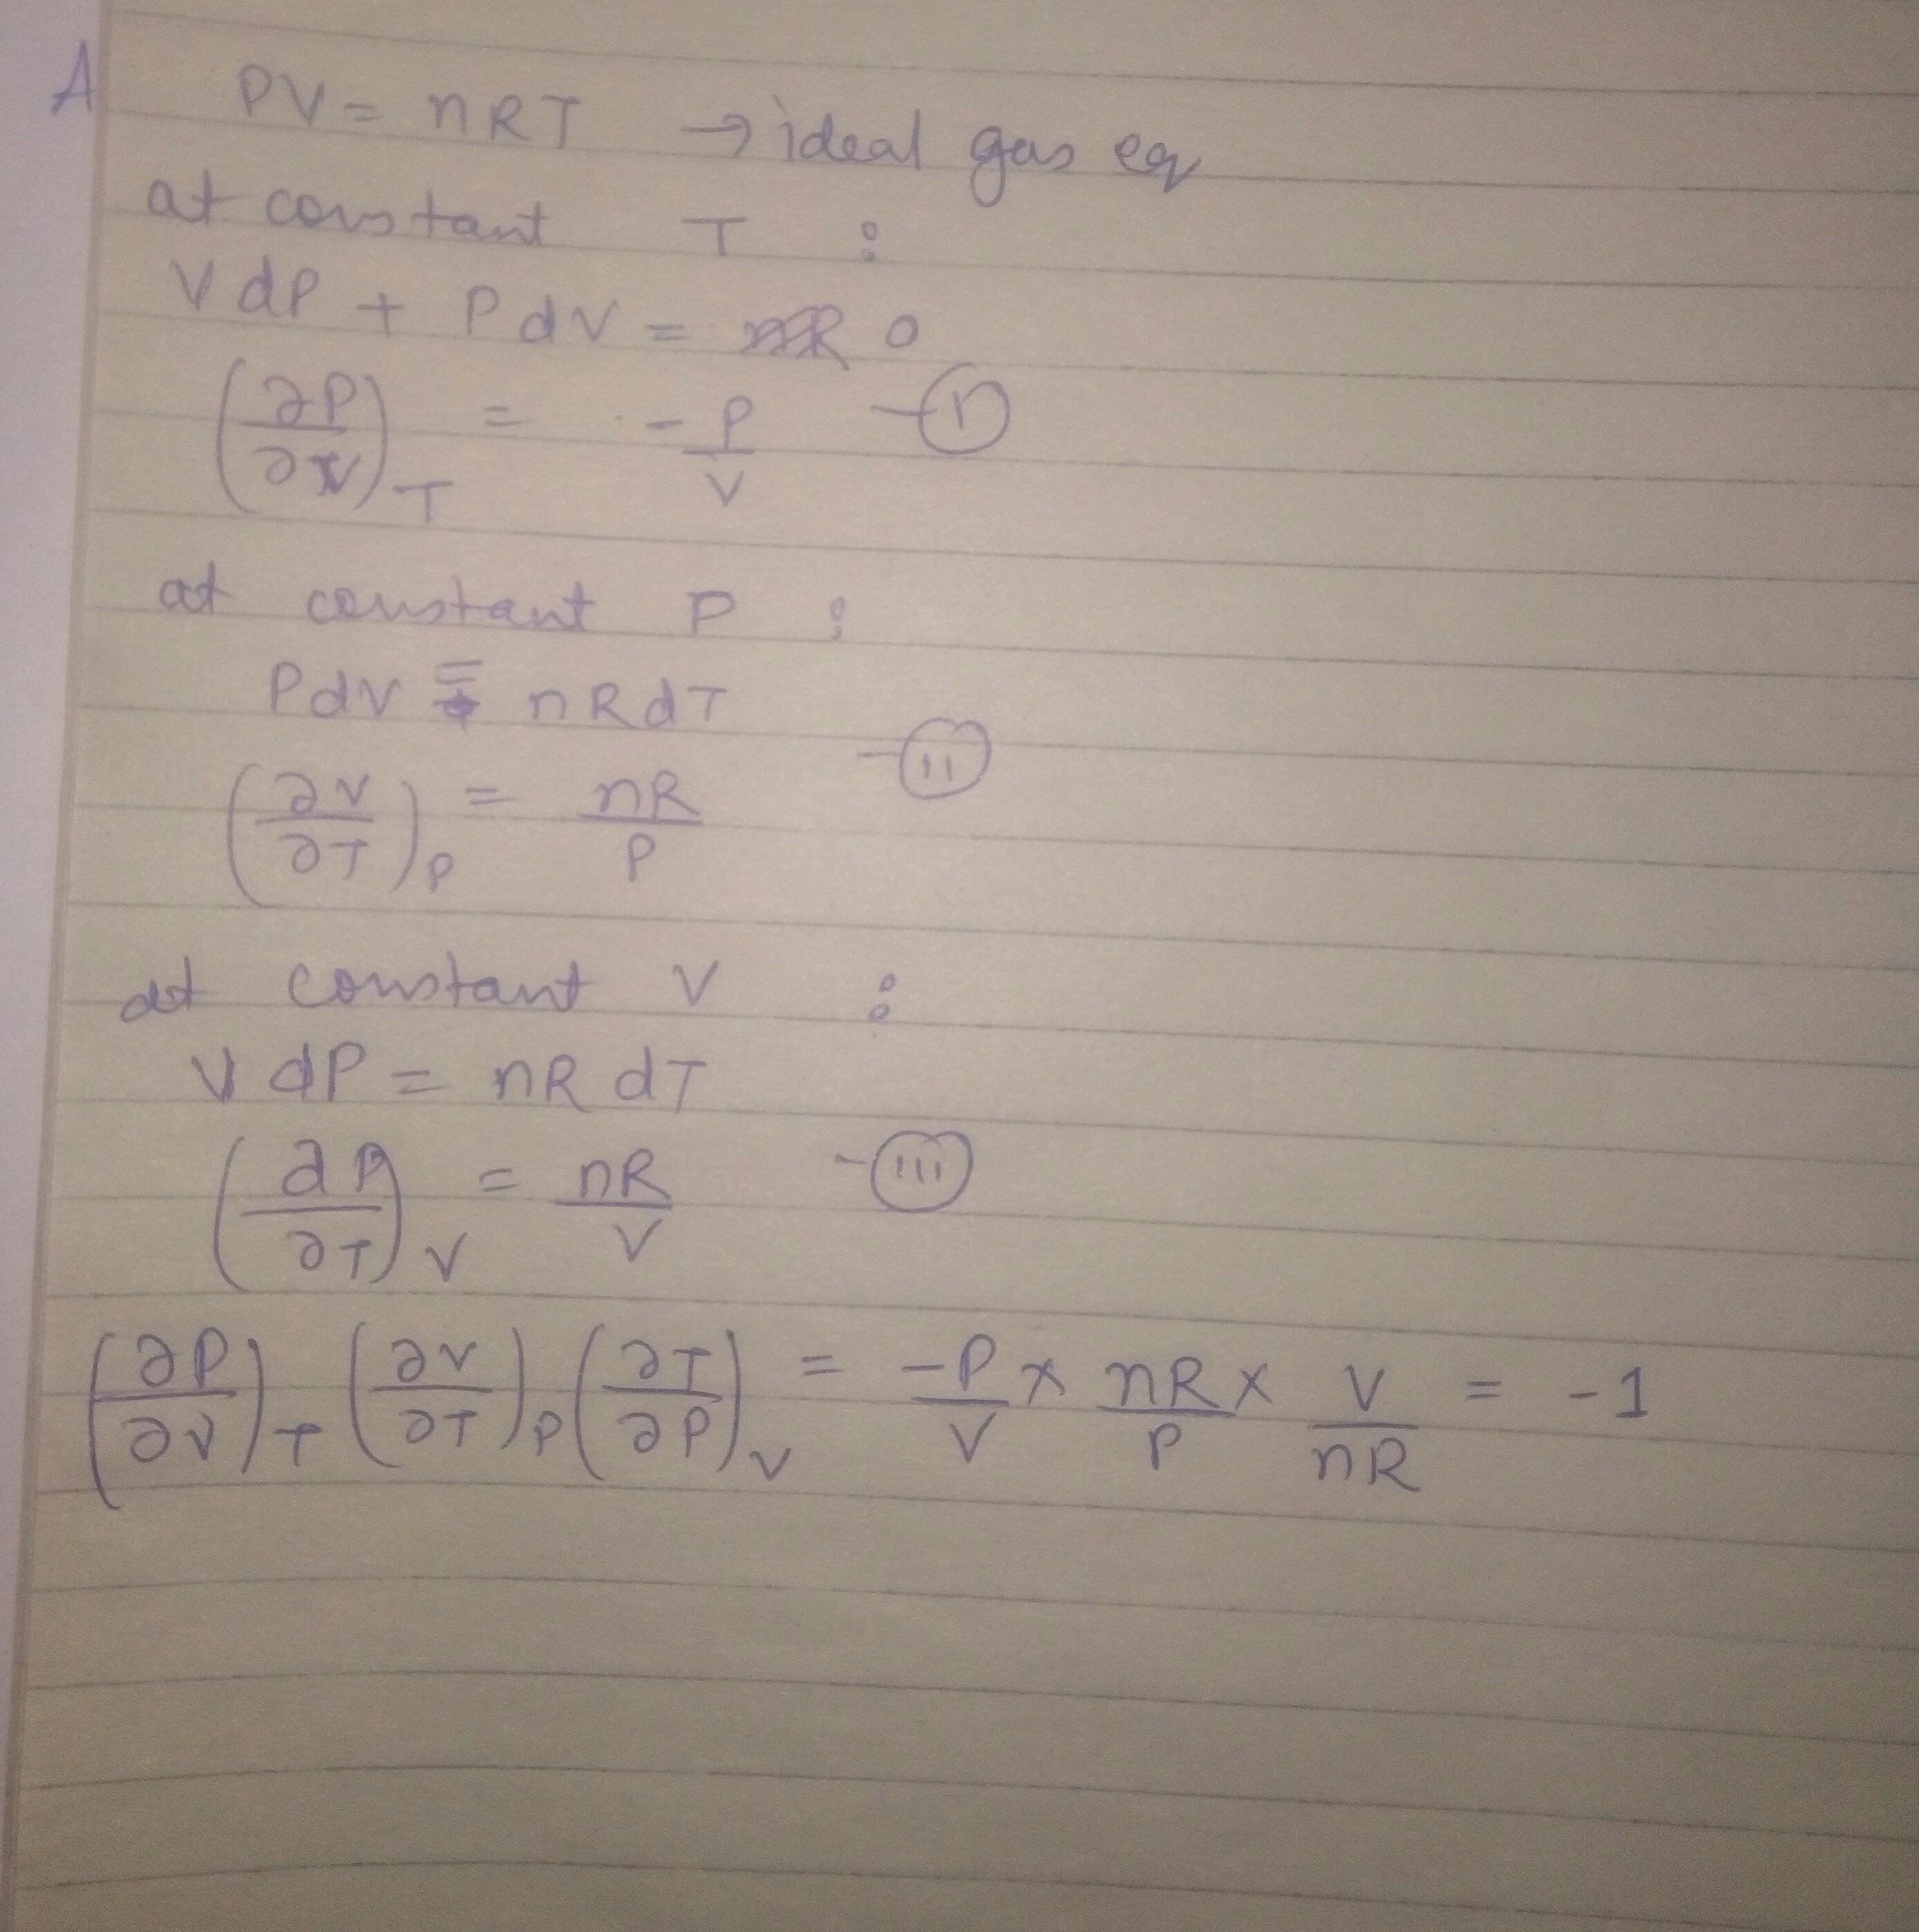 A PV = nRT → ideal gas eq
at constant T :
V dP + P dV = 0
(∂P/∂V)_T = -P/V —(i)
at constant P :
PdV = nRdT
(∂V/∂T)_P = nR/P —(ii)
at constant V :
V dP = nR dT
(∂P/∂T)_V = nR/V —(iii)
(∂P/∂V)_T (∂V/∂T)_P (∂T/∂P)_V = -P/V × nR/P × V/nR = -1